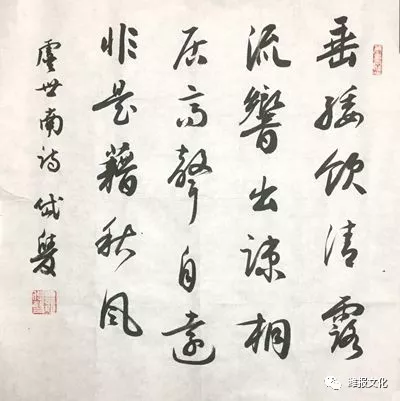 垂緌飲清露
流響出疎桐
居高聲自遠
非是藉秋風
虞世南詩 岱
潍报文化